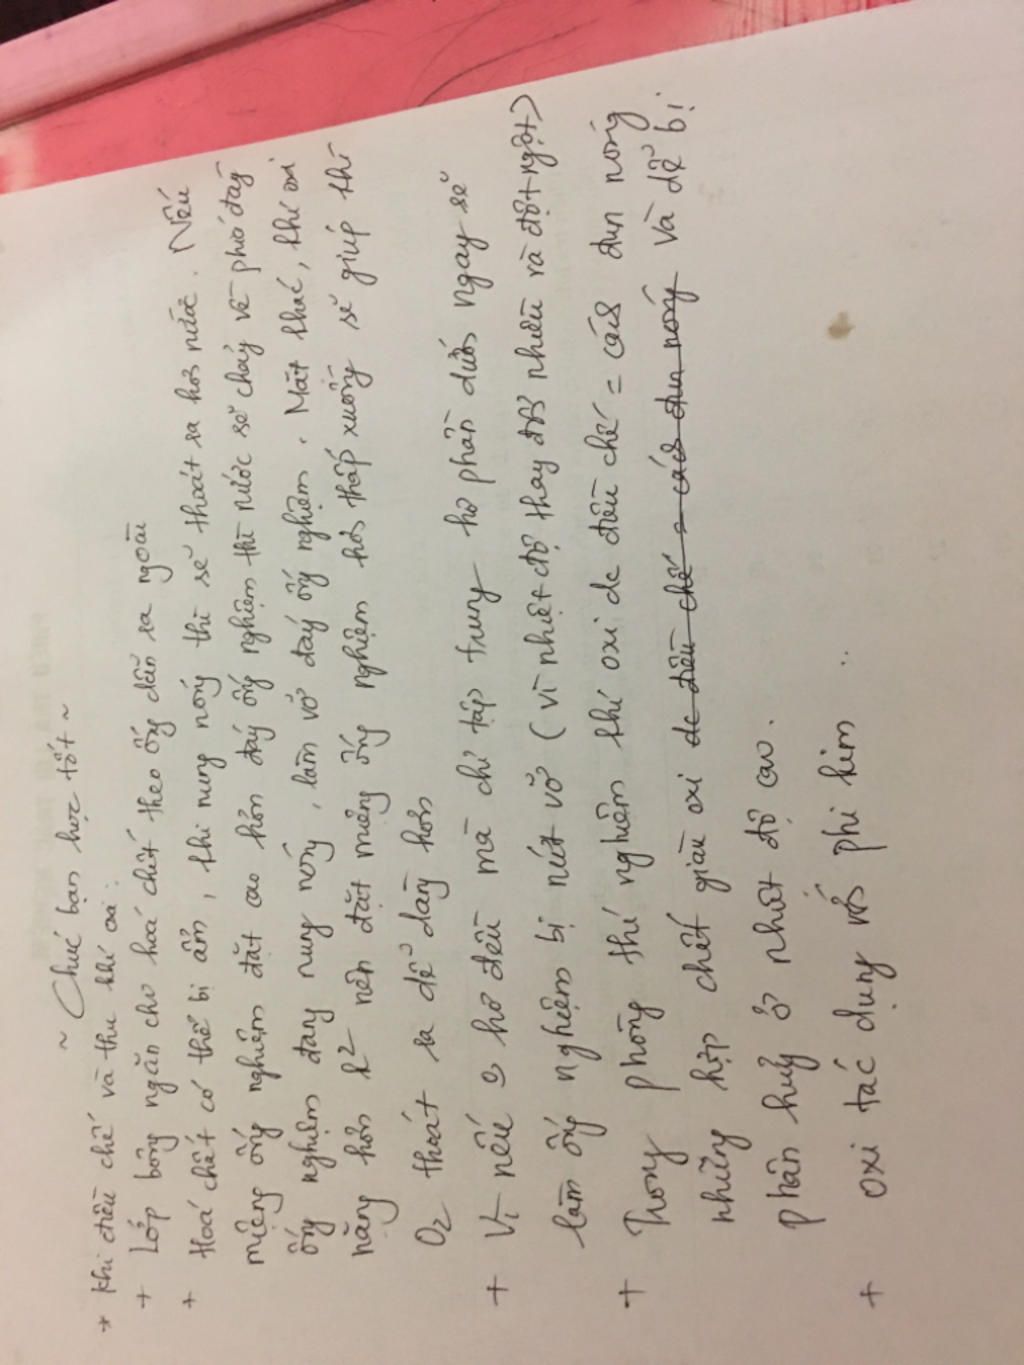 ~ Chúc bạn học tốt ~
* Khi điều chế và thu khí oxi:
+ Lớp bông ngăn cho hoá chất theo ống dẫn ra ngoài
+ Hoá chất có thể bị ẩm, khi nung nóng thì sẽ thoát ra hơi nước. Nếu
miệng ống nghiệm đặt cao hơn đáy ống nghiệm thì nước sẽ chảy về phía đáy
ống nghiệm đang nung nóng, làm vỡ đáy ống nghiệm. Mặt khác, khí oxi
nặng hơn k² nên đặt miệng ống nghiệm hơi thấp xuống sẽ giúp khí
O2 thoát ra dễ dàng hơn
+ Vì nếu o hơ đều mà chỉ tập trung hơ phần dưới ngay sẽ
làm ống nghiệm bị nứt vỡ (vì nhiệt độ thay đổi nhiều và đột ngột)
+ Trong phòng thí nghiệm khí oxi đc điều chế = cách đun nóng
những hợp chất giàu oxi đc điều chế = cách đun nóng và dễ bị
phân huỷ ở nhiệt độ cao.
+ oxi tác dụng với phi kim :